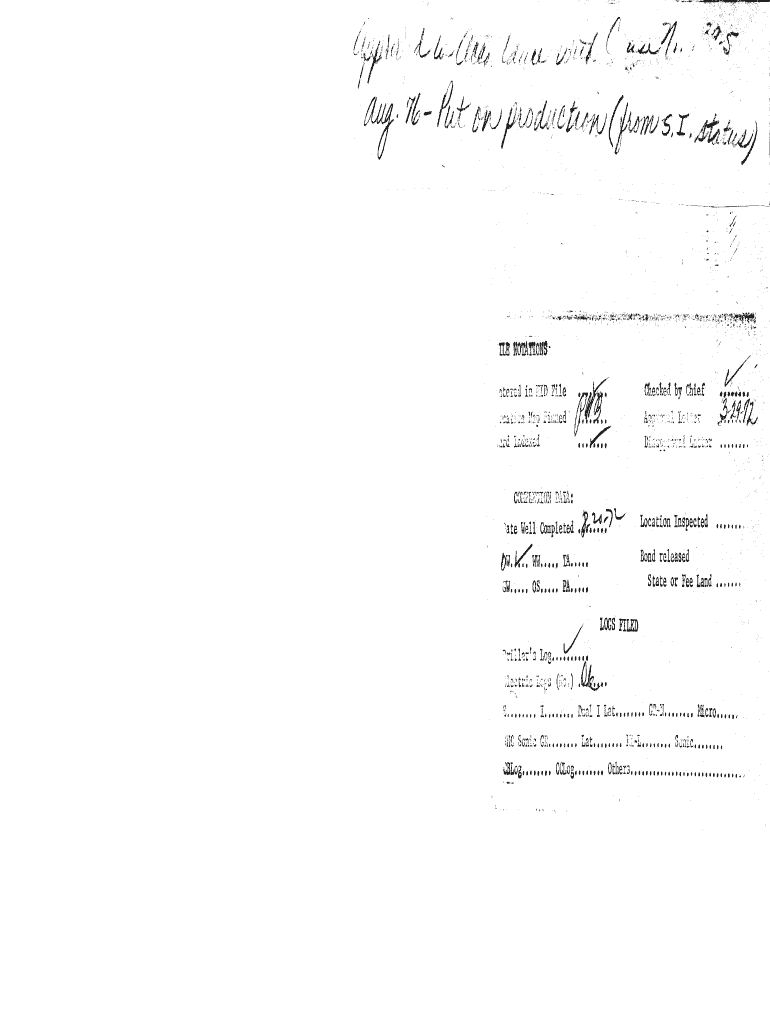 with Case No. 
Aug. 76 - Put on production (from S.I. status)
ILE NOTATIONS
ntered in NID File ....... Checked by Chief .......
cation Map Pinned ....... Approval Letter 3-29-72
ard Indexed ....... Disapproval Letter .......
COMPLETION DATA:
ate Well Completed 8-20-72 Location Inspected .......
OW..... WW..... TA..... Bond released
GW..... OS..... PA..... State or Fee Land .......
LOGS FILED
riller's Log..........
lectric Logs (No.) .......
E........ I........ Dual I Lat........ GR-N........ Micro......
BHC Sonic GR........ Lat........ MI-L........ Sonic........
CBLog........ CCLog........ Others............................